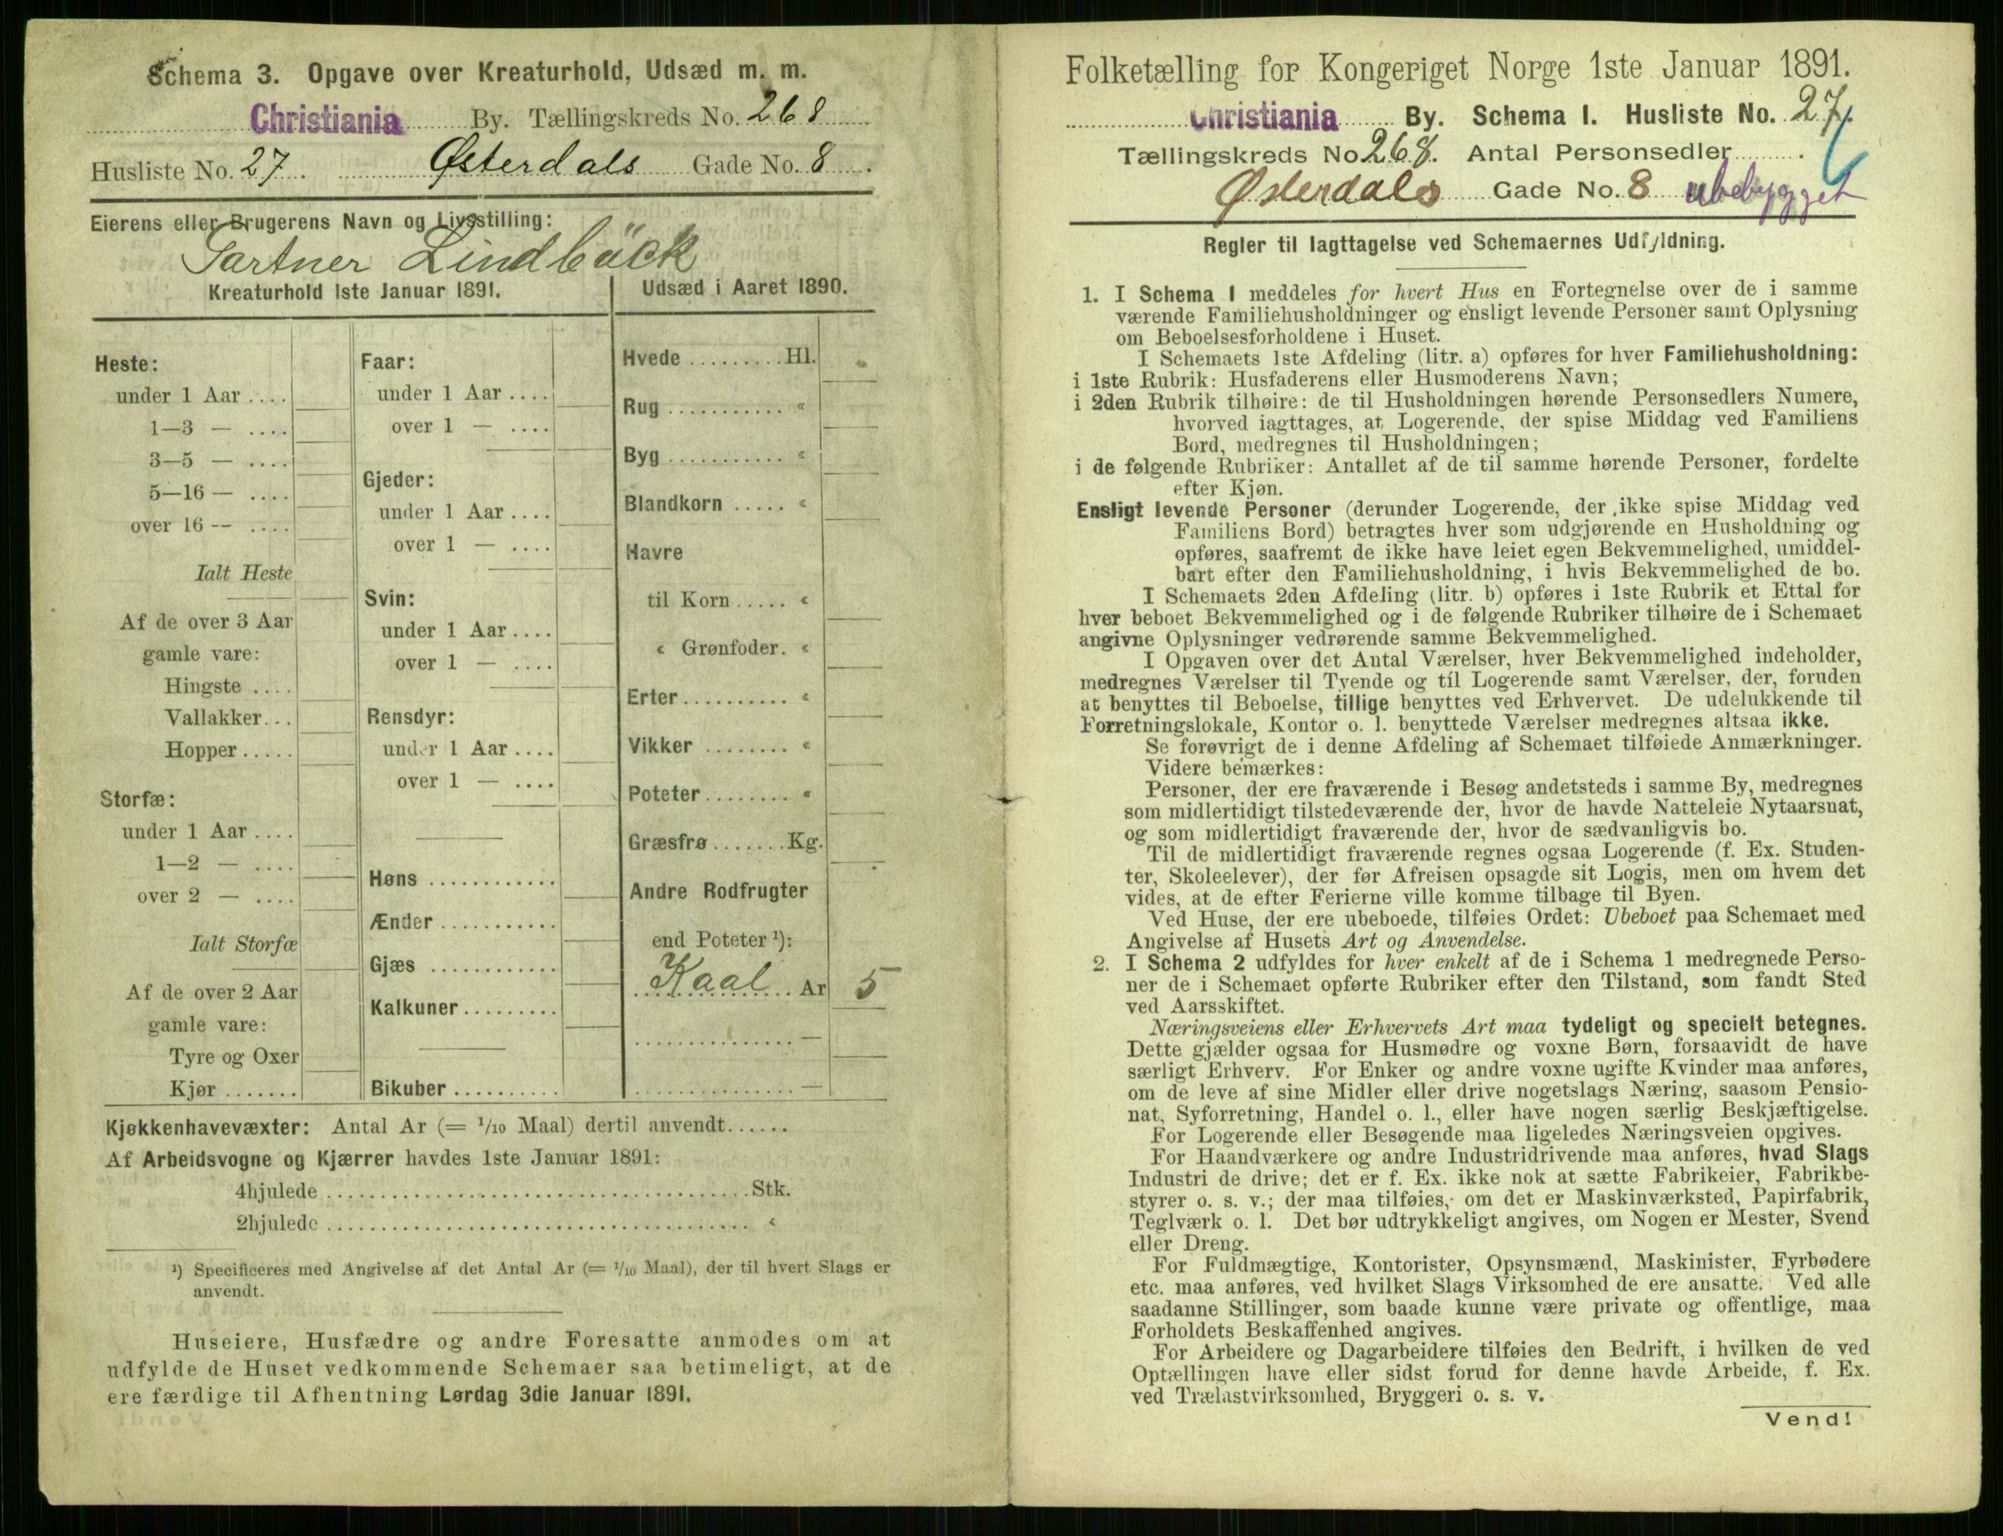 Schema 3. Opgave over Kreaturhold, Udsæd m. m.
Christiania By. Tællingskreds No. 268
Husliste No. 27. Østerdals Gade No. 8.
Eierens eller Brugerens Navn og Livsstilling:
Gartner Lindbäck
Kreaturhold 1ste Januar 1891.
Heste:
under 1 Aar ....
1—3 — ....
3—5 — ....
5—16 — ....
over 16 — ....
Ialt Heste
Af de over 3 Aar
gamle vare:
Hingste ....
Vallakker...
Hopper .....
Storfæ:
under 1 Aar ....
1—2 — ....
over 2 — ....
Ialt Storfæ
Af de over 2 Aar
gamle vare:
Tyre og Oxer
Kjør .......
Faar:
under 1 Aar ....
over 1 — ....
Gjeder:
under 1 Aar ....
over 1 — ....
Svin:
under 1 Aar ....
over 1 — ....
Rensdyr:
under 1 Aar ....
over 1 — ....
Høns ............
Ænder ...........
Gjæs ............
Kalkuner.........
Bikuber ..........
Udsæd i Aaret 1890.
Hvede .........Hl.
Rug ........... «
Byg ........... «
Blandkorn ..... «
Havre
til Korn ..... «
« Grønfoder. «
Erter .......... «
Vikker ........ «
Poteter ........ «
Græsfrø .......Kg.
Andre Rodfrugter
end Poteter ¹):
Kaal Ar 5
............... —
............... —
Kjøkkenhavevæxter: Antal Ar (= 1/10 Maal) dertil anvendt......
Af Arbeidsvogne og Kjærrer havdes 1ste Januar 1891:
4hjulede ........................................Stk.
2hjulede ........................................ «
¹) Specificeres med Angivelse af det Antal Ar (= 1/10 Maal), der til hvert Slags er
anvendt.
Huseiere, Husfædre og andre Foresatte anmodes om at
udfylde de Huset vedkommende Schemaer saa betimeligt, at de
ere færdige til Afhentning Lørdag 3die Januar 1891.
Folketælling for Kongeriget Norge 1ste Januar 1891.
Christiania By. Schema I. Husliste No. 27.
Tællingskreds No. 268. Antal Personsedler .
Østerdals Gade No. 8 ubebygget
Regler til Iagttagelse ved Schemaernes Udfyldning.
1. I Schema 1 meddeles for hvert Hus en Fortegnelse over de i samme
værende Familiehusholdninger og ensligt levende Personer samt Oplysning
om Beboelsesforholdene i Huset.
I Schemaets 1ste Afdeling (litr. a) opføres for hver Familiehusholdning:
i 1ste Rubrik: Husfaderens eller Husmoderens Navn;
i 2den Rubrik tilhøire: de til Husholdningen hørende Personsedlers Numere,
hvorved iagttages, at Logerende, der spise Middag ved Familiens
Bord, medregnes til Husholdningen;
i de følgende Rubriker: Antallet af de til samme hørende Personer, fordelte
efter Kjøn.
Ensligt levende Personer (derunder Logerende, der ikke spise Middag ved
Familiens Bord) betragtes hver som udgjørende en Husholdning og
opføres, saafremt de ikke have leiet egen Bekvemmelighed, umiddel-
bart efter den Familiehusholdning, i hvis Bekvemmelighed de bo.
I Schemaets 2den Afdeling (litr. b) opføres i 1ste Rubrik et Ettal for
hver beboet Bekvemmelighed og i de følgende Rubriker tilhøire de i Schemaet
angivne Oplysninger vedrørende samme Bekvemmelighed.
I Opgaven over det Antal Værelser, hver Bekvemmelighed indeholder,
medregnes Værelser til Tyende og til Logerende samt Værelser, der, foruden
at benyttes til Beboelse, tillige benyttes ved Erhvervet. De udelukkende til
Forretningslokale, Kontor o. l. benyttede Værelser medregnes altsaa ikke.
Se forøvrigt de i denne Afdeling af Schemaet tilføiede Anmærkninger.
Videre bemærkes:
Personer, der ere fraværende i Besøg andetsteds i samme By, medregnes
som midlertidigt tilstedeværende der, hvor de havde Natteleie Nytaarsnat,
og som midlertidigt fraværende der, hvor de sædvanligvis bo.
Til de midlertidigt fraværende regnes ogsaa Logerende (f. Ex. Studen-
ter, Skoleelever), der før Afreisen opsagde sit Logis, men om hvem det
vides, at de efter Ferierne ville komme tilbage til Byen.
Ved Huse, der ere ubeboede, tilføies Ordet: Ubeboet paa Schemaet med
Angivelse af Husets Art og Anvendelse.
2. I Schema 2 udfyldes for hver enkelt af de i Schema 1 medregnede Perso-
ner de i Schemaet opførte Rubriker efter den Tilstand, som fandt Sted
ved Aarsskiftet.
Næringsveiens eller Erhvervets Art maa tydeligt og specielt betegnes.
Dette gjælder ogsaa for Husmødre og voxne Børn, forsaavidt de have
særligt Erhverv. For Enker og andre voxne ugifte Kvinder maa anføres,
om de leve af sine Midler eller drive nogetslags Næring, saasom Pensio-
nat, Syforretning, Handel o. l., eller have nogen særlig Beskjæftigelse.
For Logerende eller Besøgende maa ligeledes Næringsveien opgives.
For Haandværkere og andre Industridrivende maa anføres, hvad Slags
Industri de drive; det er f. Ex. ikke nok at sætte Fabrikeier, Fabrikbe-
styrer o. s. v.; der maa tilføies, om det er Maskinværksted, Papirfabrik,
Teglværk o. l. Det bør udtrykkeligt angives, om Nogen er Mester, Svend
eller Dreng.
For Fuldmægtige, Kontorister, Opsynsmænd, Maskinister, Fyrbødere
etc. maa anføres, ved hvilket Slags Virksomhed de ere ansatte. Ved alle
saadanne Stillinger, som baade kunne være private og offentlige, maa
Forholdets Beskaffenhed angives.
For Arbeidere og Dagarbeidere tilføies den Bedrift, i hvilken de ved
Optællingen have eller sidst forud for denne havde Arbeide, f. Ex.
ved Trælastvirksomhed, Bryggeri o. s. v.
Vend!